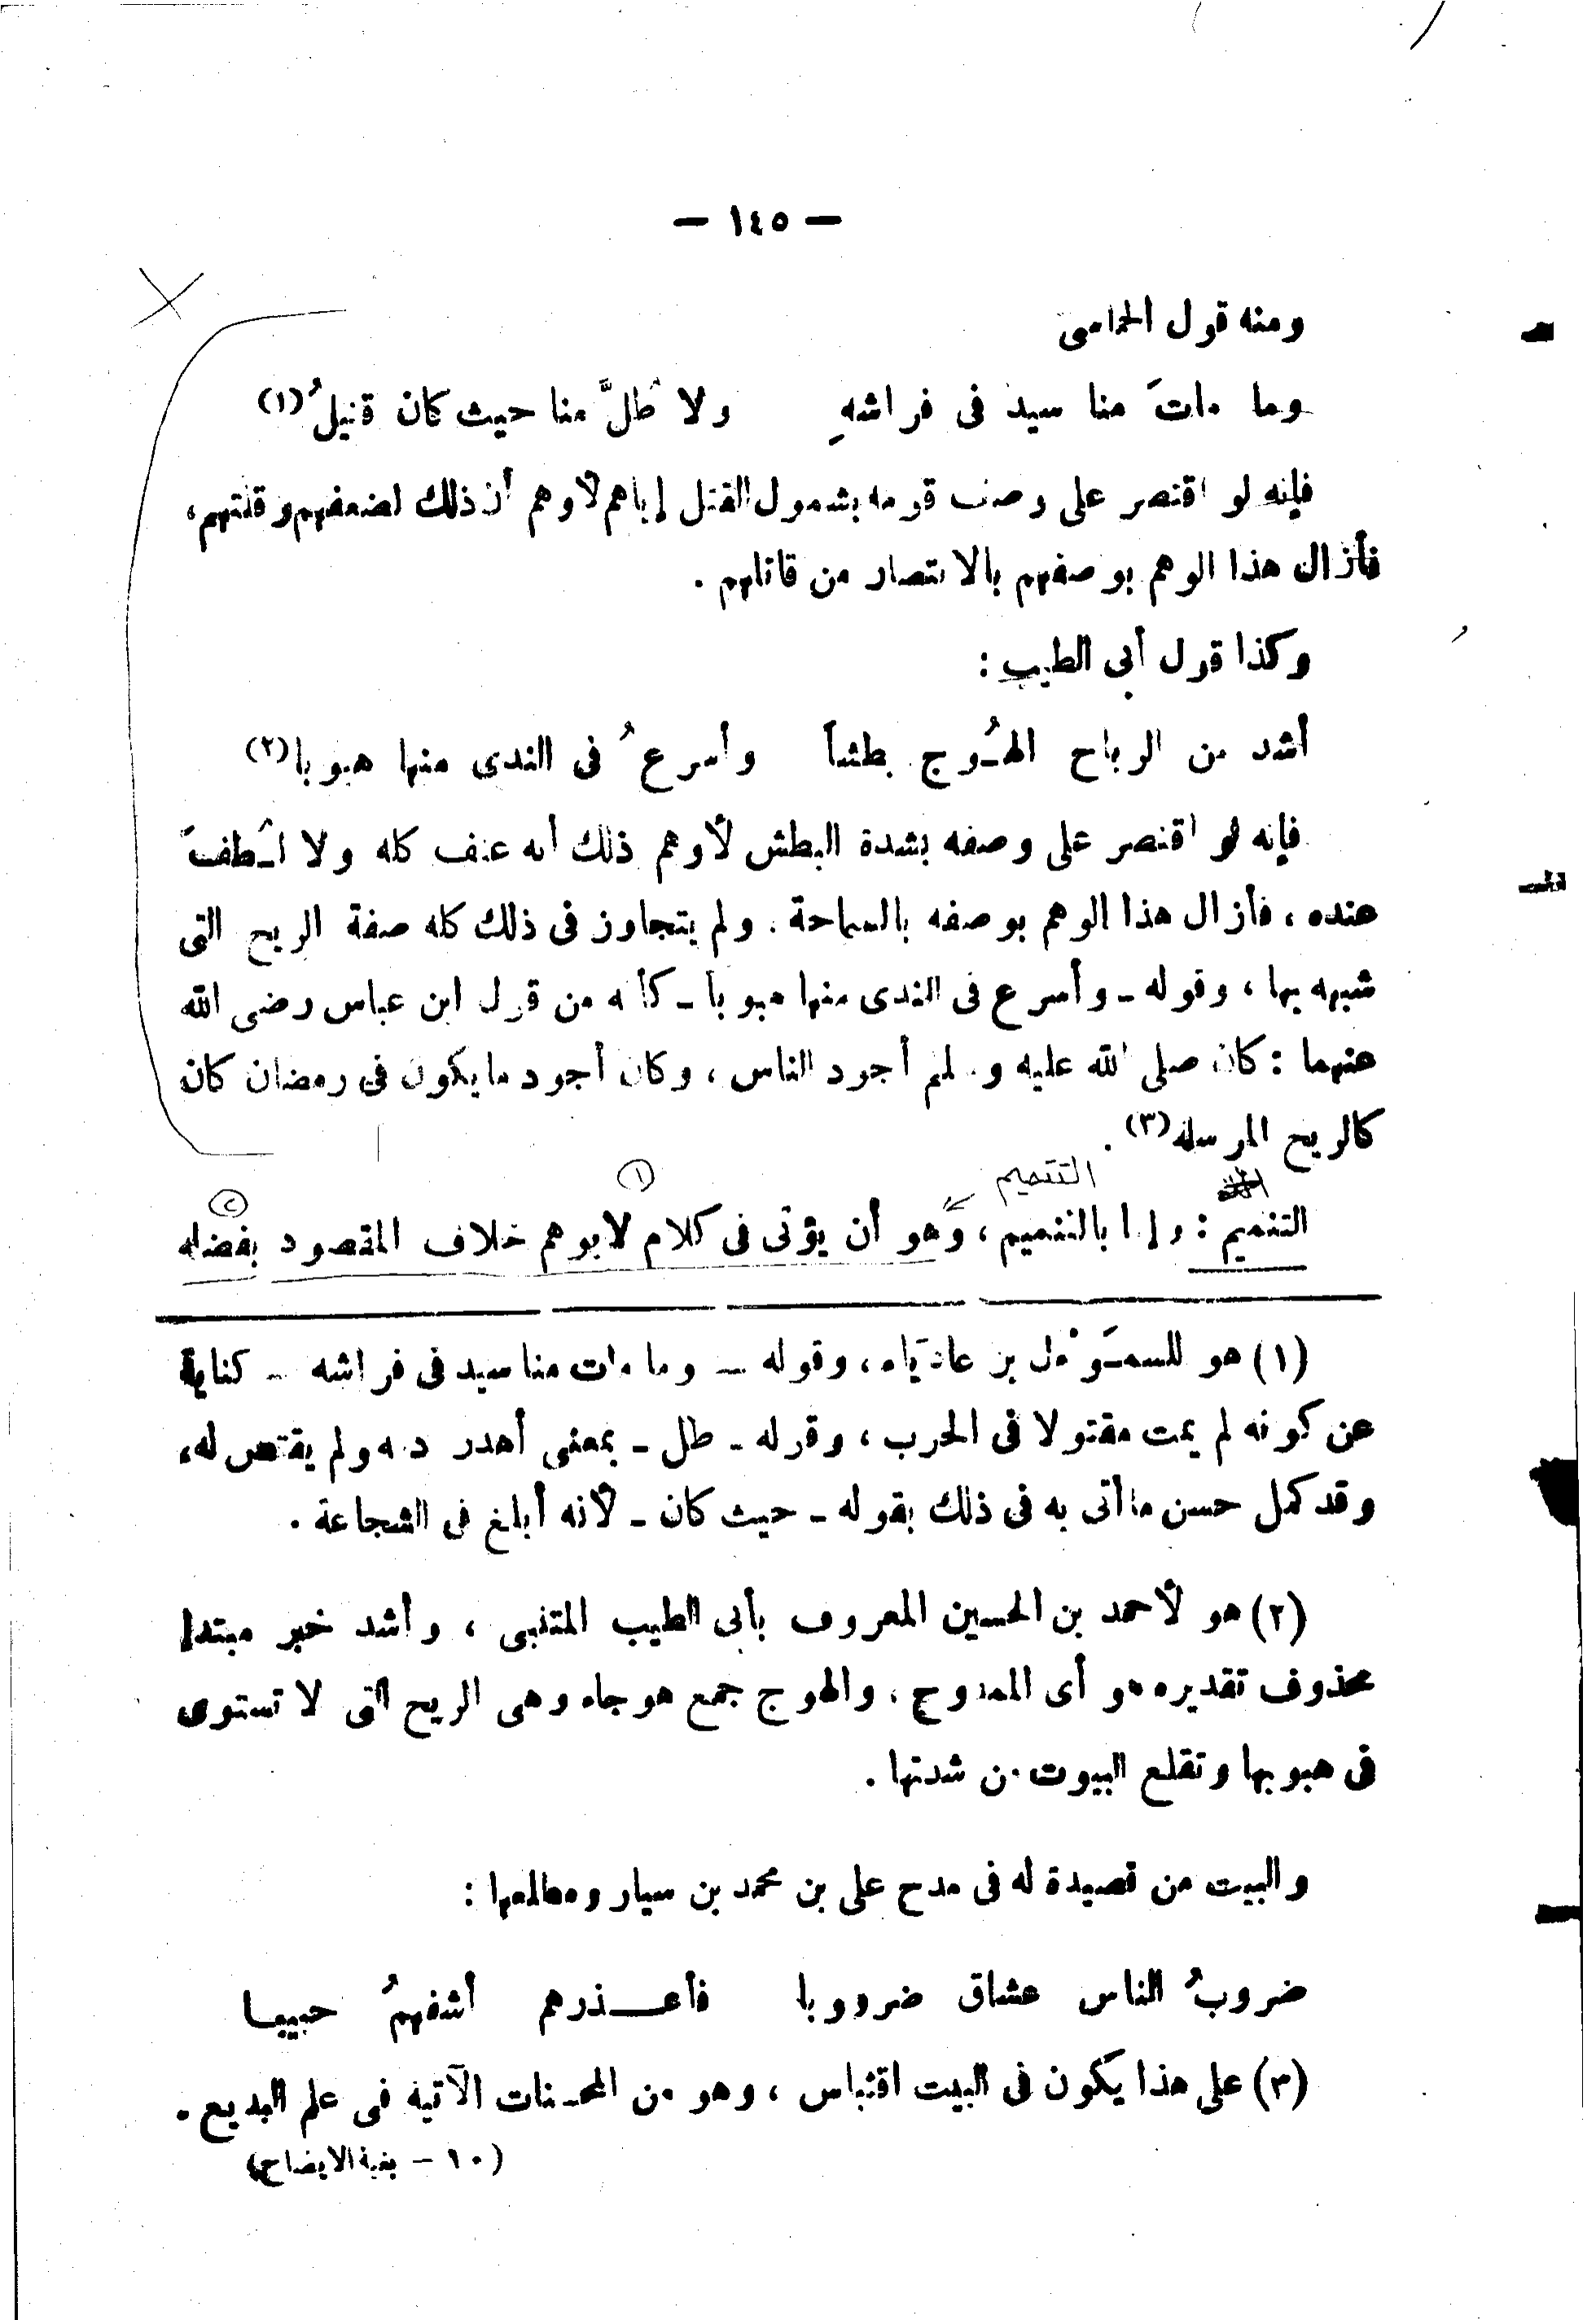 — ١٤٥ —
ومنه قول الحماسى
وما ماتَ منا سيد فى فراشهِ ولا طُلَّ منا حيث كان قتيلُ (١)
فإنه لو اقتصر على وصف قومه بشمول القتل إياهم لأوهم أن ذلك لضعفهم وقلتهم،
فأزال هذا الوهم بوصفهم بالانتصار من قاتلهم .
وكذا قول أبى الطيب :
أشد من الرياح الهُوج بطشاً وأسرعُ فى الندى منها هبوبا (٢)
فإنه لو اقتصر على وصفه بشدة البطش لأوهم ذلك أنه عنف كله ولا لُطفَ
عنده ، فأزال هذا الوهم بوصفه بالسماحة . ولم يتجاوز فى ذلك كله صفة الريح التى
شبهه بها ، وقوله ـ وأسرع فى الندى منها هبوبا ـ كأنه من قول ابن عباس رضى الله
عنهما : كان صلى الله عليه وسلم أجود الناس ، وكان أجود ما يكون فى رمضان كان
كالريح المرسلة (٣) .
التتميم
(١) (٢)
التتميم : وإما بالتتميم ، وهو أن يؤتى فى كلام لا يوهم خلاف المقصود بفضلة
(١) هو للسموْءل بن عادياء ، وقوله ـ وما مات منا سيد فى فراشه ـ كناية
عن كونه لم يمت مقتولا فى الحرب ، وقوله ـ طل ـ بمعنى أهدر دمه ولم يقتص له،
وقد كمل حسن ما أتى به فى ذلك بقوله ـ حيث كان ـ لأنه أبلغ فى الشجاعة .
(٢) هو لأحمد بن الحسين المعروف بأبى الطيب المتنبى ، وأشد خبر مبتدا
محذوف تقديره هو أى الممدوح ، والهوج جمع هوجاء وهى الريح التى لا تستوى
فى هبوبها وتقلع البيوت من شدتها .
والبيت من قصيدة له فى مدح على بن محمد بن سيار ومطلعها :
ضروبُ الناس عشاق ضروبا فأعـــذرهم أشفهمُ حبيبا
(٣) على هذا يكون فى البيت اقتباس ، وهو من المحسنات الآتية فى علم البديع .
(١٠ – بغية الايضاح)